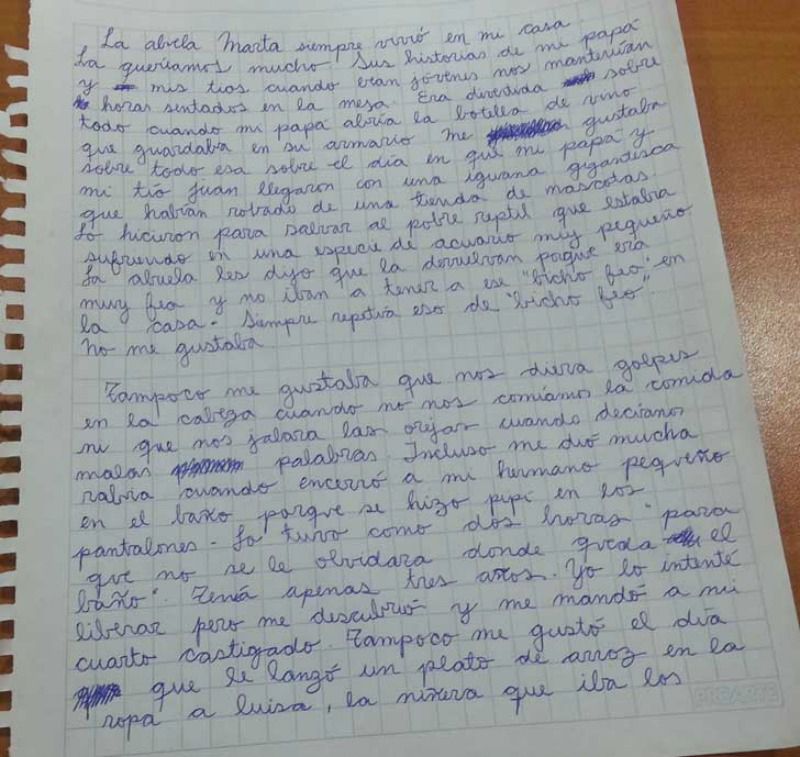 La abuela Marta siempre vivió en mi casa.
La queríamos mucho. Sus historias de mi papá
y mis tíos cuando eran jóvenes nos mantenían
horas sentados en la mesa. Era divertida sobre
todo cuando mi papá abría la botella de vino
que guardaba en su armario. Me gustaba
sobre todo esa sobre el día en que mi papá y
mi tío Juan llegaron con una iguana gigantesca
que habían robado de una tienda de mascotas.
Lo hicieron para salvar al pobre reptil que estaba
sufriendo en una especie de acuario muy pequeño.
La abuela les dijo que la devuelvan porque era
muy fea y no iban a tener a ese "bicho feo" en
la casa. Siempre repetía eso de "bicho feo".
No me gustaba.
Tampoco me gustaba que nos diera golpes
en la cabeza cuando no nos comíamos la comida
ni que nos jalara las orejas cuando decíamos
malas palabras. Incluso me dió mucha
rabia cuando encerró a mi hermano pequeño
en el baño porque se hizo pipí en los
pantalones. Lo tuvo como dos horas "para
que no se le olvidara donde queda el
baño". Tenía apenas tres años. Yo lo intenté
liberar pero me descubrió y me mandó a mi
cuarto castigado. Tampoco me gustó el día
que le lanzó un plato de arroz en la
ropa a Luisa, la niñera que iba los
PROARTE